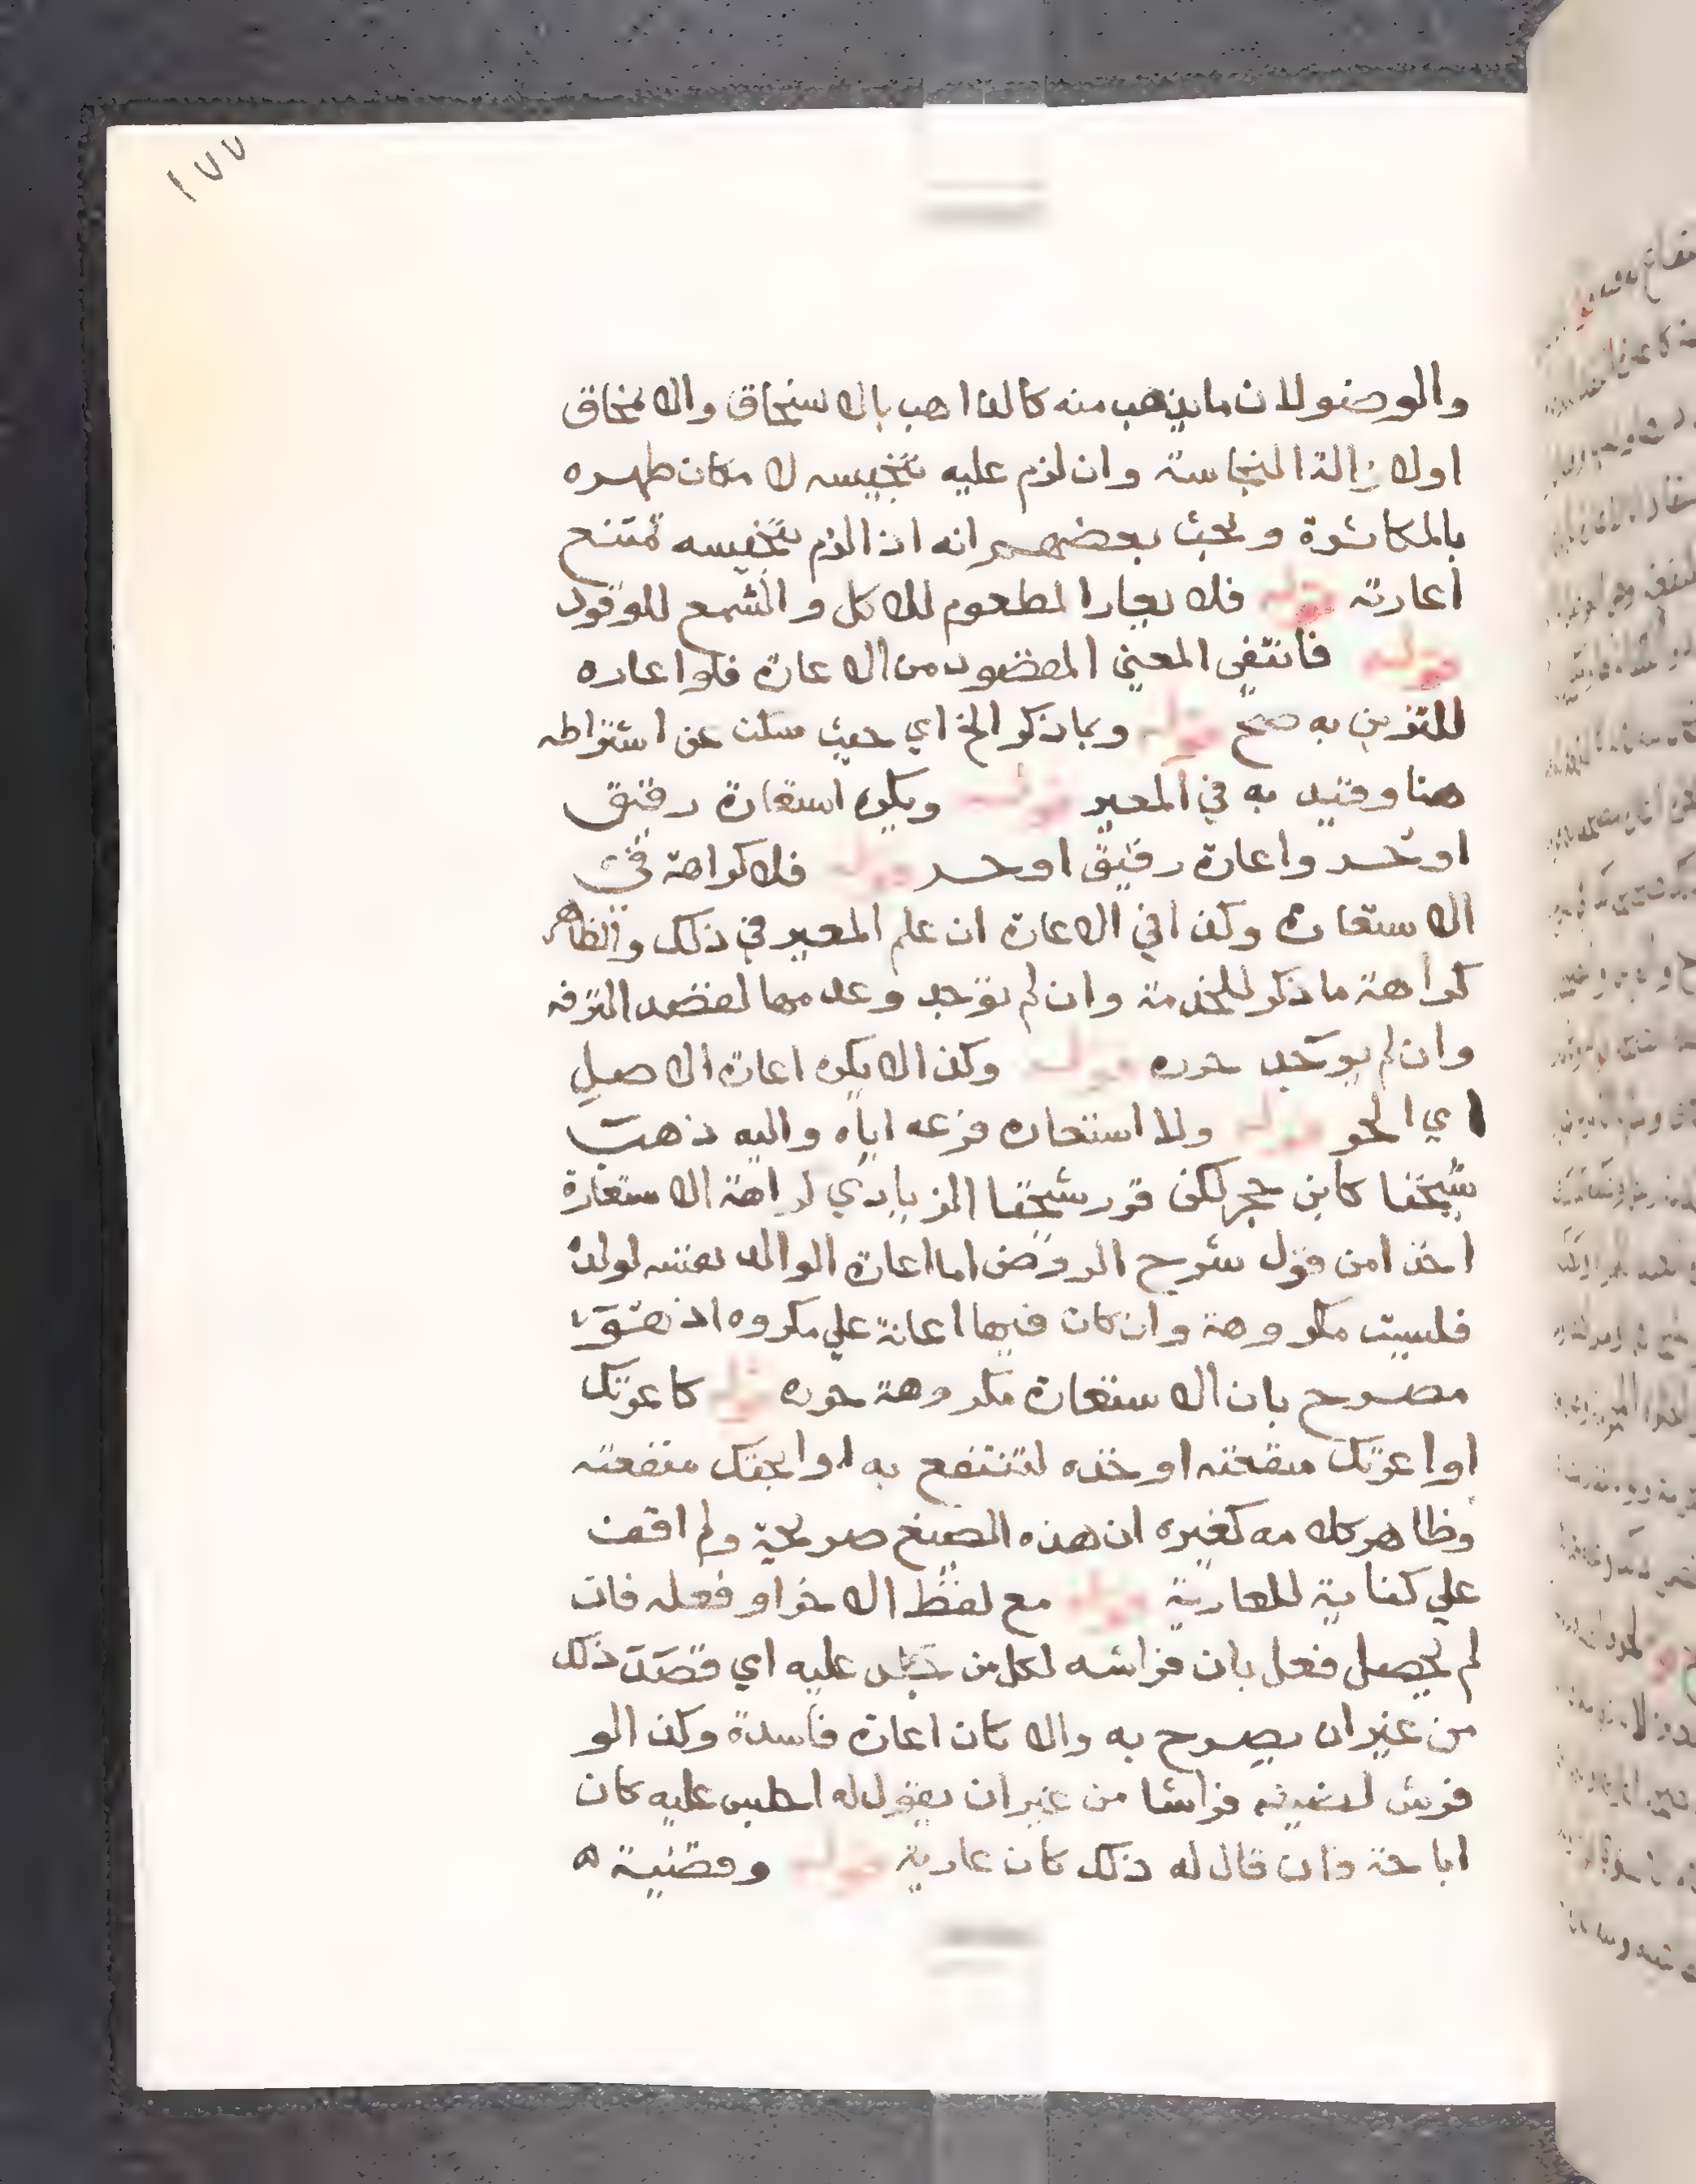 ١٧٧
والوضو لان ما يذهب منه كالذاهب بالانسحاق والانمحاق
اولازالة النجاسة وان لزم عليه تنجيسه لامكان طهره
بالمكاثرة وبحث بعضهم انه اذا لزم تنجيسه تمتنع
اعارته قوله فلا يعار المطعوم للاكل والشمع للوقود
قوله فانتفي المعني المقصود من الاعارة فلو اعاره
للتزين به صح قوله وبما ذكر الخ اي حيث سكت عن اشتراطه
هنا وقيد به في المعير قوله ويكره استعارة رقيق
او نحـد واعارة رقيق او حـد قوله فلا كراهة في
الاستعارة وكذا في الاعارة ان علم المعير في ذلك والظاهر
كراهة ما ذكر للخدمة وان لم توجد وعدمها لقصد الترفه
وان لم يوجد حرره قوله وكذا لا يكره اعارة الاصل
اي الحر قوله ولا استعارة فرعه اياه واليه ذهب
شيخنا كابن حجر لكن قرر شيخنا الزيادي كراهة الاستعارة
اخذا من قول شرح الروض اما اعارة الوالد نفسه لولده
فليست مكروهة وان كان فيها اعانة علي مكروه اذ هو
مصرح بان الاستعارة مكروهة حرره قوله كاعرتك
او اعرتك منفعته او خذه لتنتفع به او ابحتك منفعته
وظاهر كلامه كغيره ان هذه الصيغ صريحة ولم اقف
علي كناية للعارية قوله مع لفظ الاخر او فعله فان
لم يحصل فعل بان فراشه لكل من جلس عليه اي قصد ذلك
من غير ان يصرح به والا كان اعارة فاسدة وكذا لو
فرش لضيفه فراشا من غير ان يقول له اجلس عليه كان
اباحة وان قال له ذلك كان عارية قوله وقضية ه